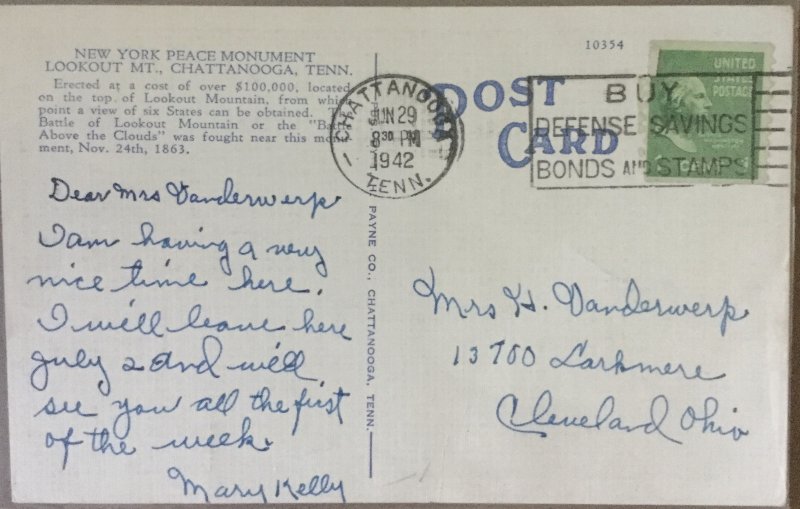 NEW YORK PEACE MONUMENT
LOOKOUT MT., CHATTANOOGA, TENN.
Erected at a cost of over $100,000, located
on the top of Lookout Mountain, from which
point a view of six States can be obtained.
Battle of Lookout Mountain or the "Battle
Above the Clouds" was fought near this monu-
ment, Nov. 24th, 1863.
Dear Mrs Vanderwerp
I am having a very
nice time here.
I will leave here
July 2 and will
see you all the first
of the week.
Mary Kelly
PAYNE CO., CHATTANOOGA, TENN.
CHATTANOOGA
JUN 29
8 30 PM
1942
TENN.
10354
POST
CARD
BUY
DEFENSE SAVINGS
BONDS AND STAMPS
UNITED
STATES
POSTAGE
Mrs H. Vanderwerp
13700 Larkmere
Cleveland Ohio